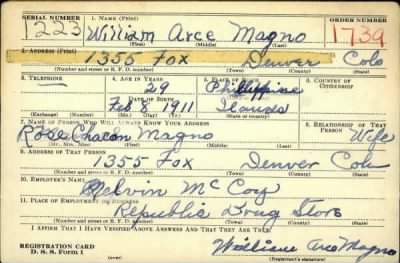 SERIAL NUMBER 1. NAME (Print) ORDER NUMBER
1223 William Arce Magno 1739
(First) (Middle) (Last)
2. ADDRESS (Print)
1355 Fox Denver Colo
(Number and street or R. F. D. number) (Town) (County) (State)
3. TELEPHONE 4. AGE IN YEARS 5. PLACE OF BIRTH 6. COUNTRY OF CITIZENSHIP
29 Philippine
DATE OF BIRTH
Feb 8 1911 Islands
(Exchange) (Number) (Mo.) (Day) (Yr.) (State or country)
7. NAME OF PERSON WHO WILL ALWAYS KNOW YOUR ADDRESS 8. RELATIONSHIP OF THAT PERSON
Rose Chacon Magno Wife
(Mr., Mrs., Miss) (First) (Middle) (Last)
9. ADDRESS OF THAT PERSON
1355 Fox Denver Colo
(Number and street or R. F. D. number) (Town) (County) (State)
10. EMPLOYER'S NAME
Melvin McCoy
11. PLACE OF EMPLOYMENT OR BUSINESS
Republic Drug Store
(Number and street or R. F. D. number) (Town) (County) (State)
I AFFIRM THAT I HAVE VERIFIED ABOVE ANSWERS AND THAT THEY ARE TRUE.
REGISTRATION CARD
D. S. S. Form 1 William Arce Magno
(Registrant's signature)